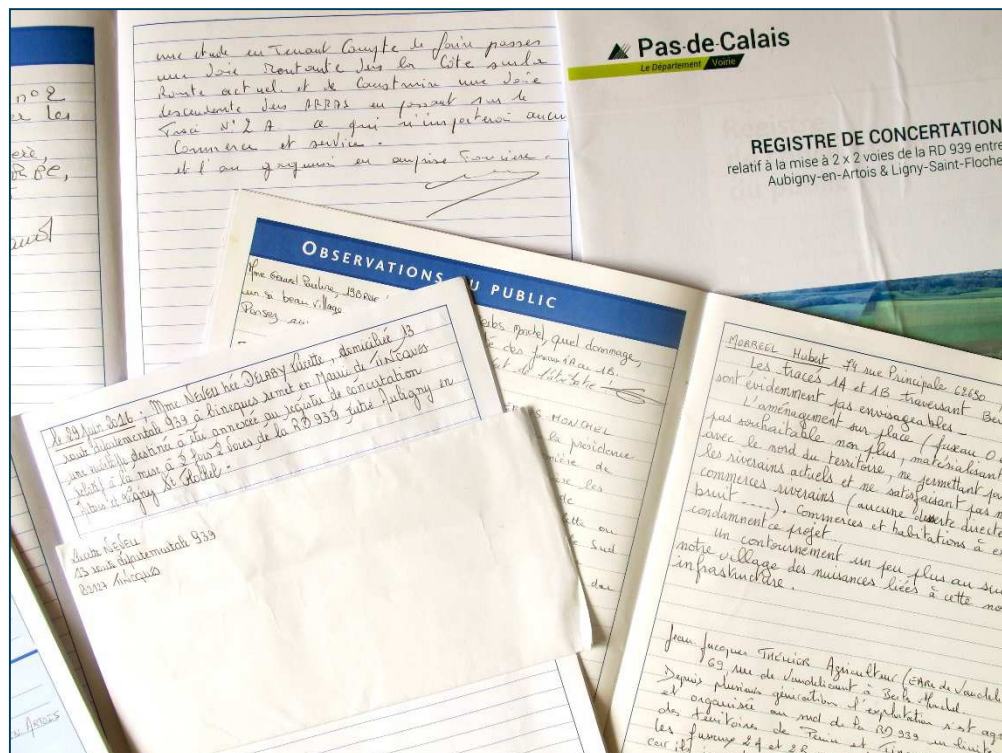 une étude en Tenant Compte de faire passer
une voie montante vers la Côte sur la
Route actuel et de Construire une voie
descendante vers ARRAS en passant sur le
Tracé N° 2 A ce qui n'importeroi aucun
Commerce et service.
et l'on gagnerai en emprise Foncière.
n° 2
les
Pas-de-Calais
Le Département Voirie
REGISTRE DE CONCERTATION
relatif à la mise à 2 x 2 voies de la RD 939 entre
Aubigny-en-Artois & Ligny-Saint-Floche
OBSERVATIONS DU PUBLIC
Mme Gérard Pauline, 19B Rue
un si beau village
Pensez
Monchel, quel dommage,
des fuseaux 1A ou 1B.
MONCHEL
la présidence
de
les
de
ou
Sud
le 29 juin 2016 ; Mme NEVEU née DELABY Lucette, domiciliée 13
route départementale 939 à Tincques remet en Mairie de TINCQUES
une destinée à être annexée au registre de concertation
relatif à la mise à 2 fois 2 voies de la RD 939 entre Aubigny en
Artois et Ligny St Flochel.
Lucette NEVEU
13 route départementale 939
TINCQUES
MORREEL Hubert 74 rue Principale 62690
Les tracés 1A et 1B traversant
sont évidemment pas envisageables
L'aménagement sur place (fuseau 0
pas souhaitable non plus, matérialisant
avec le nord du territoire, ne permettant pas
les riverains actuels et ne satisfaisant pas
commerces riverains (aucune desserte directe
bruit .......). Commerces et habitations à
condamnent ce projet
un contournement un peu plus au sud
notre village des nuisances liées à cette
infrastructure.
Jean Jacques Agriculteur (EARL de
69 rue de à Berles Monchel
Depuis plusieurs générations l'exploitation s'est
et organisée au sud de la RD 939
des territoires de Penin et
les fuseaux 2A et 2B
car